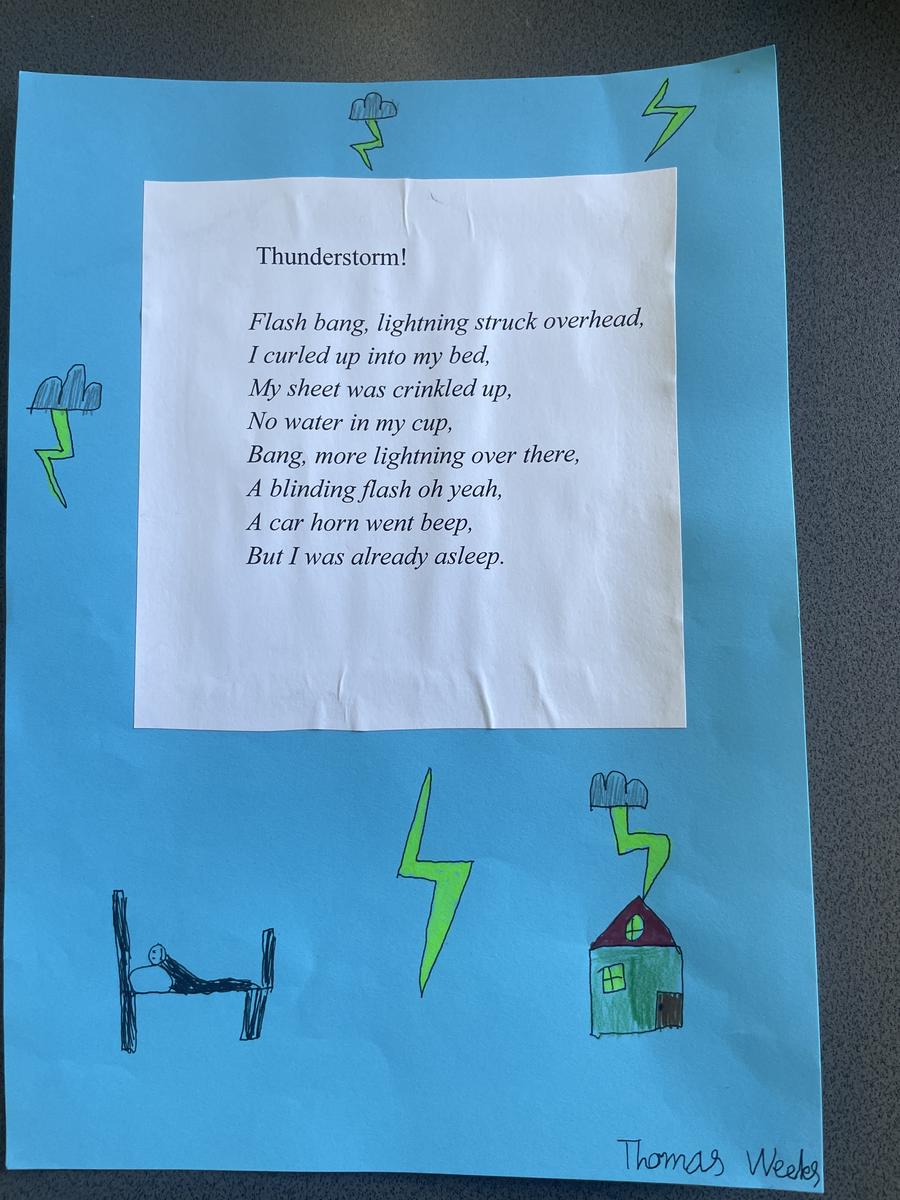 Thunderstorm!
Flash bang, lightning struck overhead,
I curled up into my bed,
My sheet was crinkled up,
No water in my cup,
Bang, more lightning over there,
A blinding flash oh yeah,
A car horn went beep,
But I was already asleep.
Thomas Weeks